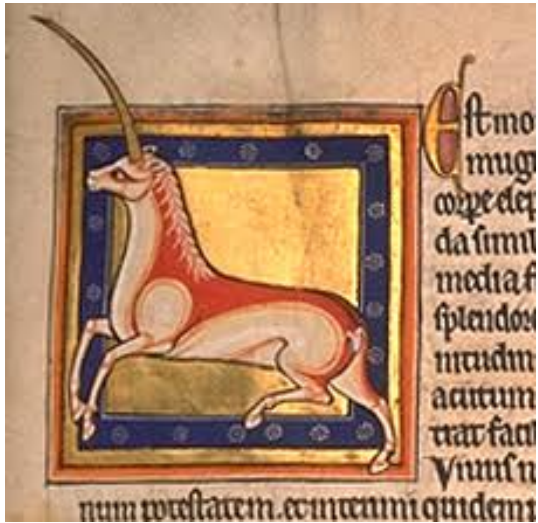 Est mo
mugi
corpe elep
da simil
media f
splendore
nitudin
acutum
trat facil
Viuus n
num potestatem. et interimi quidem p